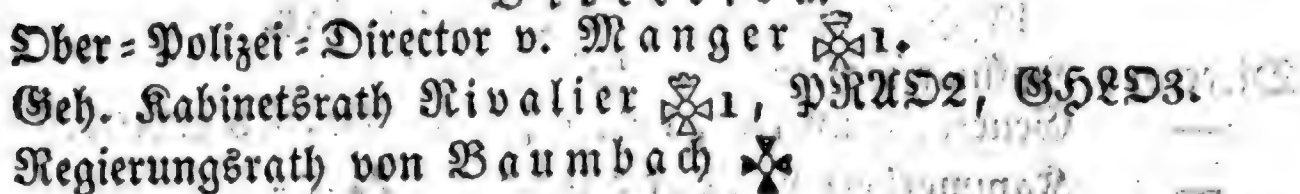 Ober-Polizei-Director v. Manger 1.
Geh. Kabinetsrath Rivalier 1, PRAO2, GHLO3.
Regierungsrath von Baumbach